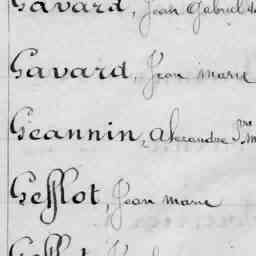 Gavard, Jean Gabriel
Gavard, Jean Marie
Geannin, Alexandre Pre
Gesslot, Jean Marie